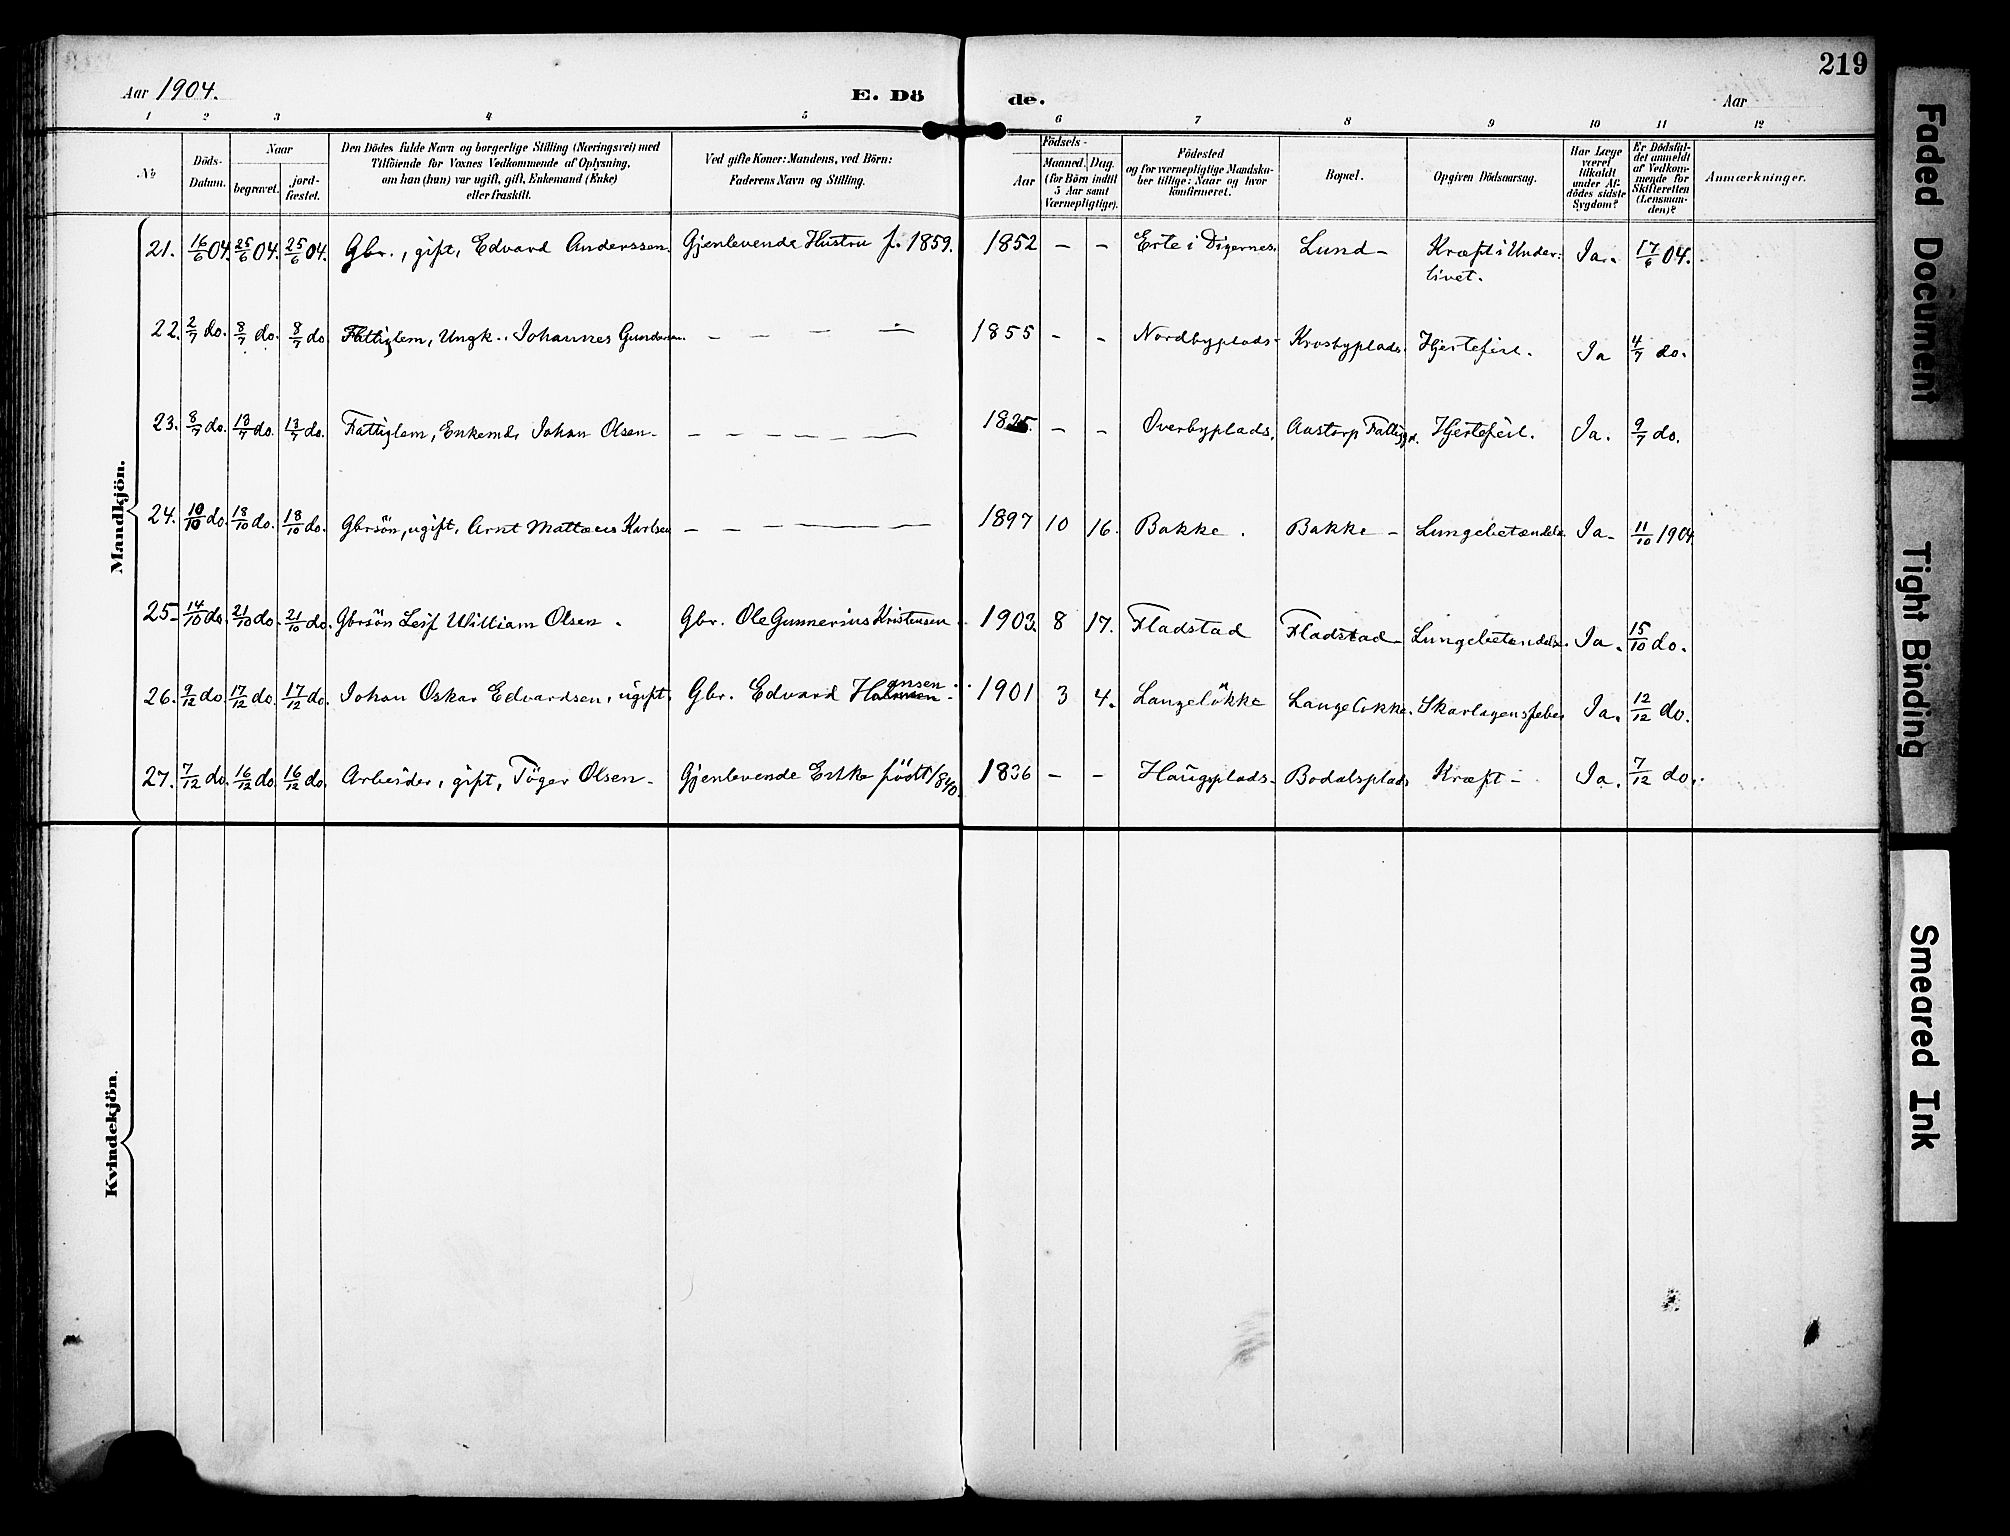 219
Aar 1904.
E. Dö
de.
Aar
1 2 3 4 5 6 7 8 9 10 11 12
No
Döds-
Datum.
Naar
begravet.
jord-
fæstet.
Den Dödes fulde Navn og borgerlige Stilling (Næringsvei) med
Tilföiende for Voxnes Vedkommende af Oplysning,
om han (hun) var ugift, gift, Enkemand (Enke)
eller fraskilt.
Ved gifte Koner: Mandens, ved Börn:
Faderens Navn og Stilling.
Födsels-
Aar
Maaned. Dag.
(for Börn indtil
5 Aar samt
Værnepligtige).
Födested
og for værnepligtige Mandsku-
ber tillige: Naar og hvor
konfirmeret.
Bopæl.
Opgiven Dödsaarsag.
Har Læge
været
tilkaldt
under Af-
dödes sidste
Sygdom?
Er Dödsfal-
det anmeldt
af Vedkom-
mende for
Skifteretten
(Lensman-
den)?
Anmærkninger.
Mandkjön.
21. 16/6 04. 25/6 04. 25/6 04. Gbr., gift, Edvard Anderssen. Gjenlevende Hustru f. 1859. 1852 - - Erte i Digernes. Lund - Kræft i Under- Ja. 17/6 04.
livet.
22. 2/7 do. 8/7 do. 8/7 do. Fattiglem, Ungk. Johannes Gundersen - - - - 1855 - - Nordbyplads - Krosbyplads. Hjertefeil. Ja 4/7 do.
23. 8/7 do. 13/7 do. 13/7 do. Fattiglem, Enkemd. Johan Olsen - - - - - - 1825. - - Overbyplads. Aastorp Fattiggd. Hjertefeil. Ja. 9/7 do.
24. 10/10 do. 18/10 do. 18/10 do. Gbrsön, ugift, Arnt Mattæus Karlsen - - - - - - 1897 10 16. Bakke. Bakke - Lungebetændelse Ja - 11/10 1904
25 - 14/10 do. 21/10 do. 21/10 do. Gbrsön Leif William Olsen. Gbr. Ole Gunnerius Kristensen. 1903. 8 17. Fladstad Fladstad - Lungebetændelse. Ja. 15/10 do.
26. 9/12 do. 17/12 do. 17/12 do. Johan Oskar Edvardsen, ugift. Gbr. Edvard Hansen. 1901 3 4. Langelökke Langelökke. Skarlagensfeber Ja. 12/12 do.
27. 7/12 do. 16/12 do. 16/12 do. Arbeider, gift, Töger Olsen - Gjenlevende Enke födt 1840. 1836 - - Haugsplads - Bodalsplads Kræft - Ja. 7/12 do.
Kvindekjön.
Faded Document
Tight Binding
Smeared Ink